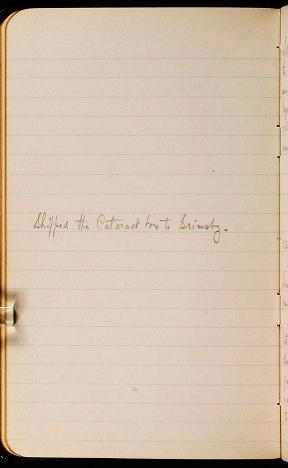 Shipped the Cataract box to Grimsby.